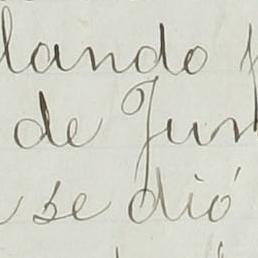 lando
de Jun
se dió